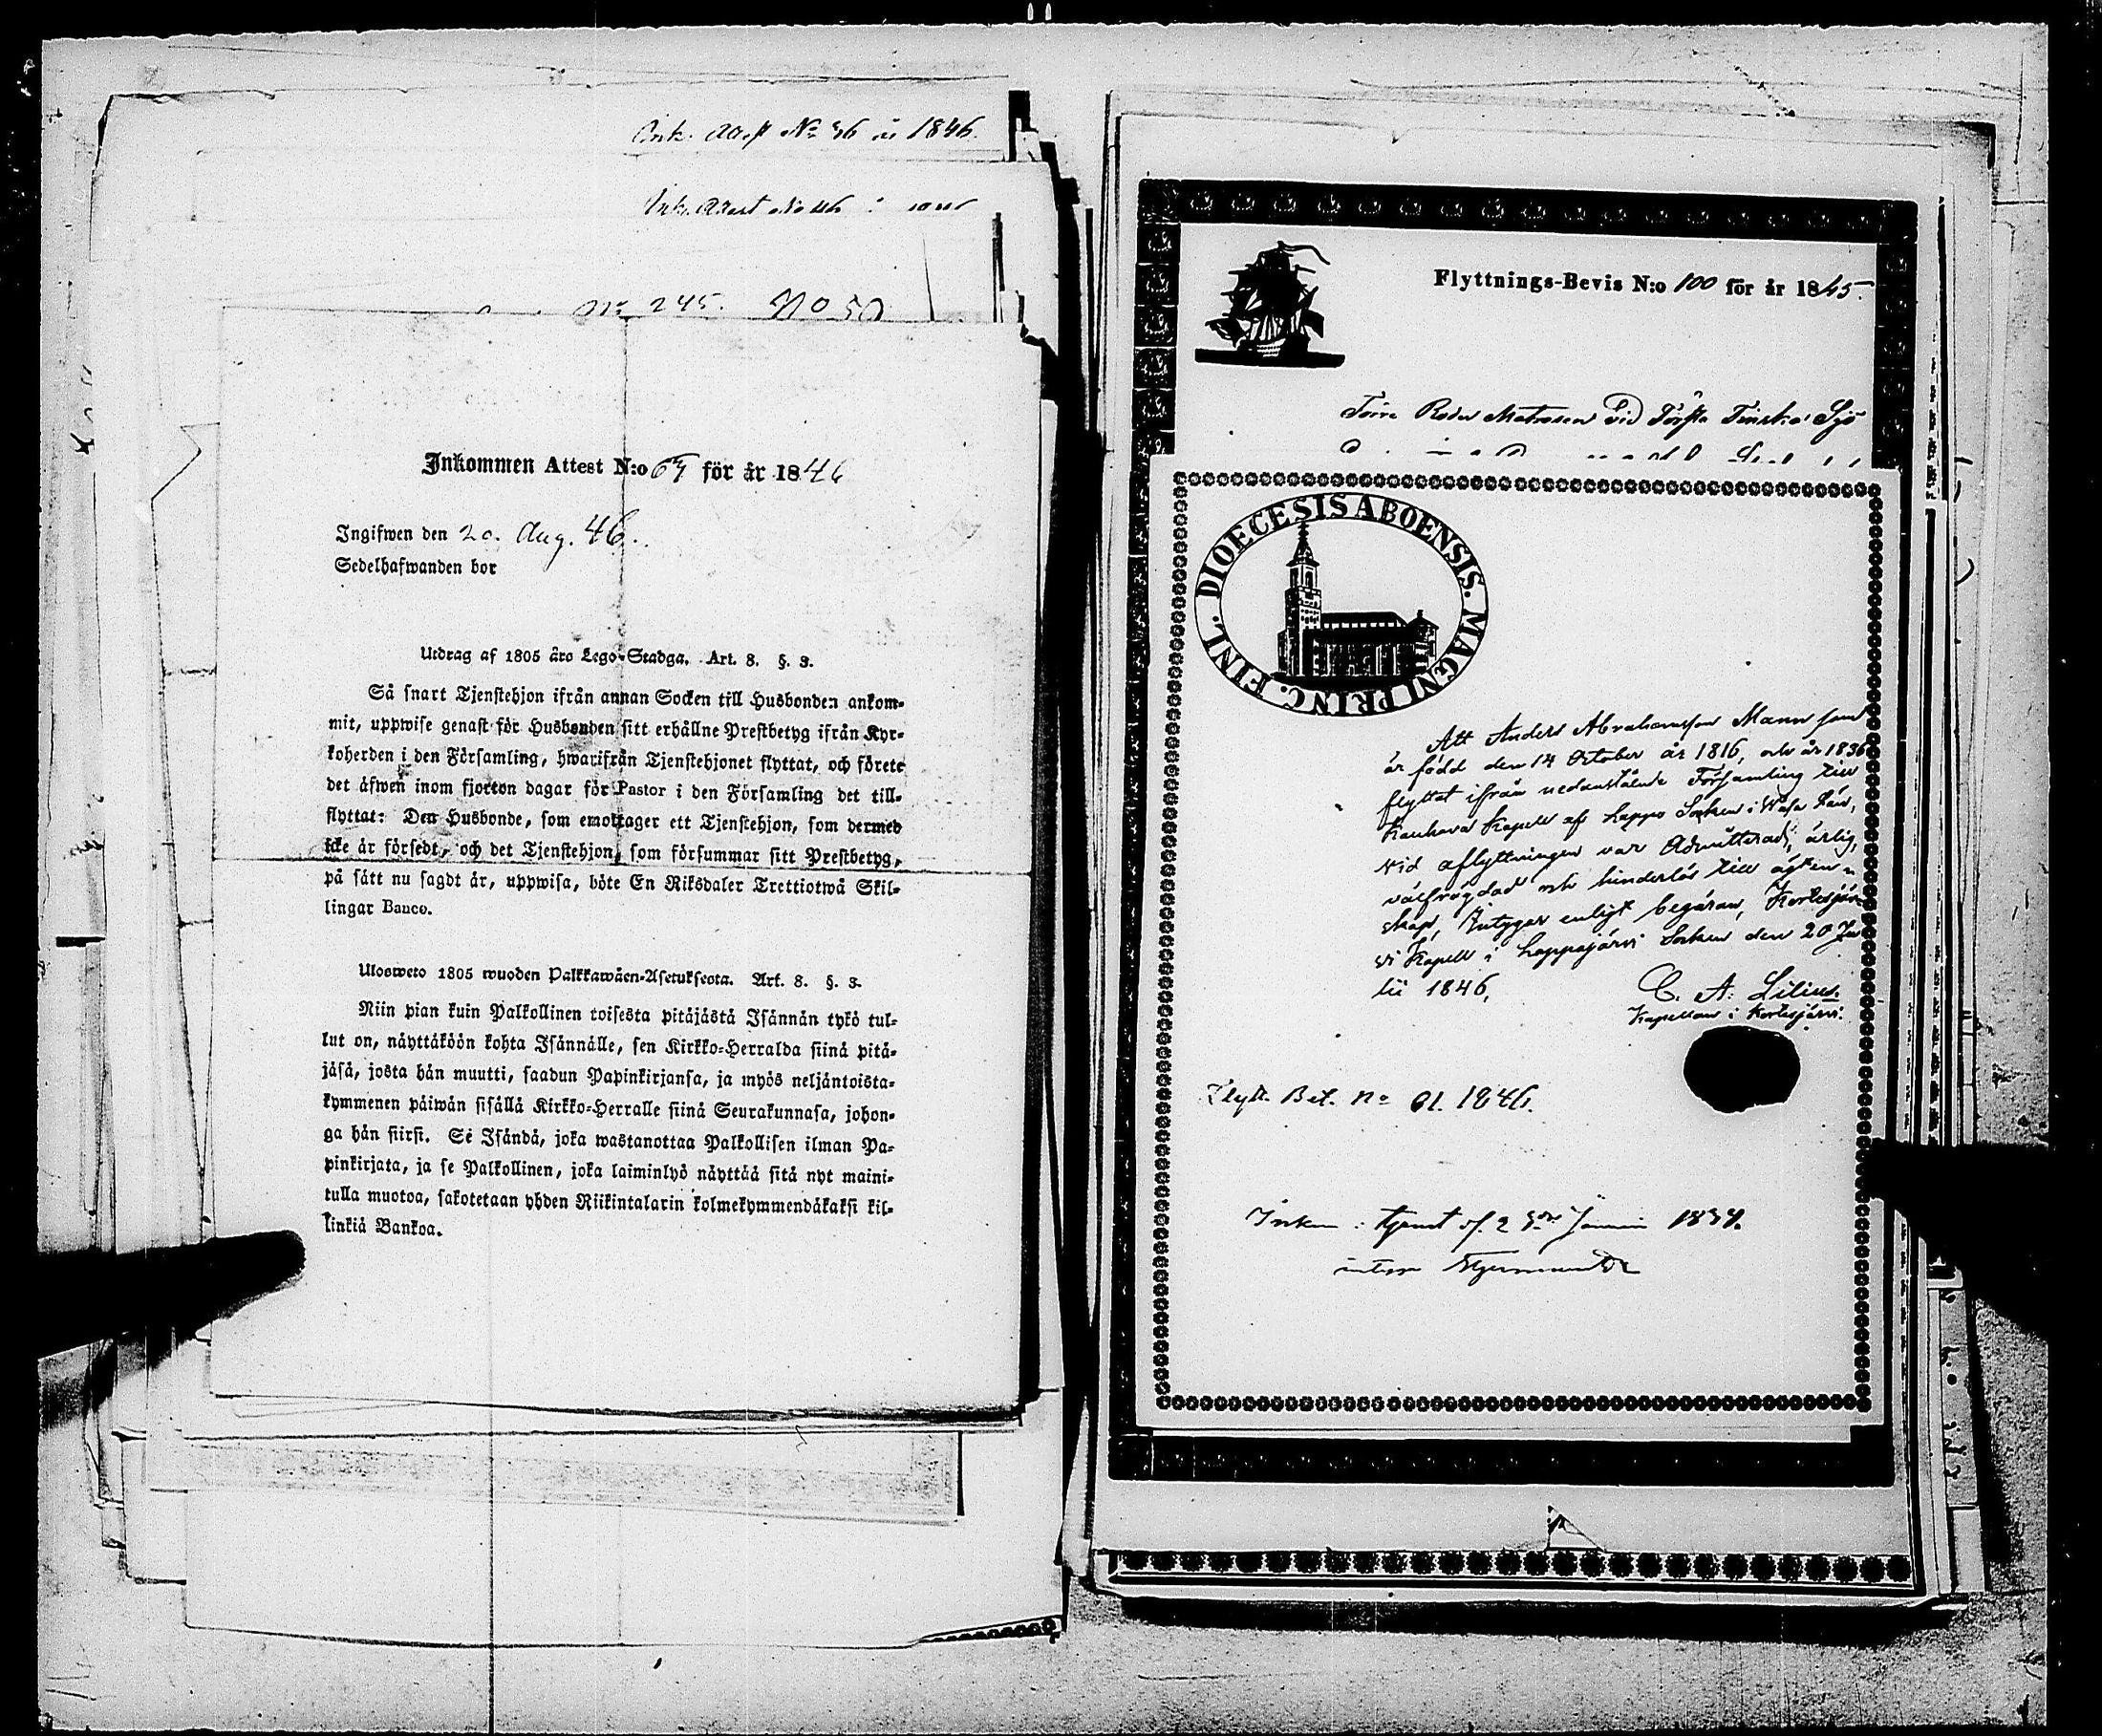 Ink. Attest No 36 år 1846.
Ink. Attest No
No 245. No 50
Inkommen Attest N:o 67 för år 1846
Ingifwen den 20. Aug. 46.
Sedelhafwanden bor
Utdrag af 1805 års Lego-Stadga. Art. 8. §. 3.
Så snart Tjenstehjon ifrån annan Socken till Husbonden ankom-
mit, uppwise genast för Husbonden sitt erhållne Prestbetyg ifrån Kyr-
koherden i den Församling, hwarifrån Tjenstehjonet flyttat, och förete
det äfwen inom fjorton dagar för Pastor i den Församling det till-
flyttat: Den Husbonde, som emottager ett Tjenstehjon, som dermed
icke är försedt, och det Tjenstehjon, som försummar sitt Prestbetyg,
på sätt nu sagdt är, uppwisa, böte En Riksdaler Trettiotwå Skil-
lingar Banco.
Ulosweto 1805 wuoden Palkkawäen-Asetuksesta. Art. 8. §. 3.
Niin pian kuin Palkollinen toisesta pitäjästä Isännän tykö tul-
lut on, näyttäköön kohta Isännälle, sen Kirkko-Herralda siinä pitä-
jäsä, josta hän muutti, saadun Papinkirjansa, ja myös neljäntoista-
kymmenen päiwän sisällä Kirkko-Herralle siinä Seurakunnasa, johon-
ga hän siirsi. Se Isändä, joka wastanottaa Palkollisen ilman Pa-
pinkirjata, ja se Palkollinen, joka laiminlyö näyttää sitä nyt maini-
tulla muotoa, sakotetaan yhden Riikintalarin kolmekymmendäkaksi kil-
linkiä Bankoa.
Flyttnings-Bevis N:o 100 för år 1845.
Förre Matrosen vid Första Finska Sjö
DIOECESIS ABOENSIS. MAGNI PRINC. FINL.
Att Anders Abrahamsson Mann som
är född den 14 October år 1816, och år 1836
flyttat ifrån nedanstående Församling till
Kauhava Kapell af Lappo Socken i Wasa Län,
vid aflyttningen var Admitterad, ärlig,
välfrägdad och hinderlös till ägten-
skap, Intygar enligt begäran, Kortesjär-
vi Kapell i Lappajärvi Socken den 20 Ju-
lii 1846,
C. A. Lilius.
Kapellan i Kortesjärvi.
Flytt. Bet. No 91. 1846.
Inkom 1837.